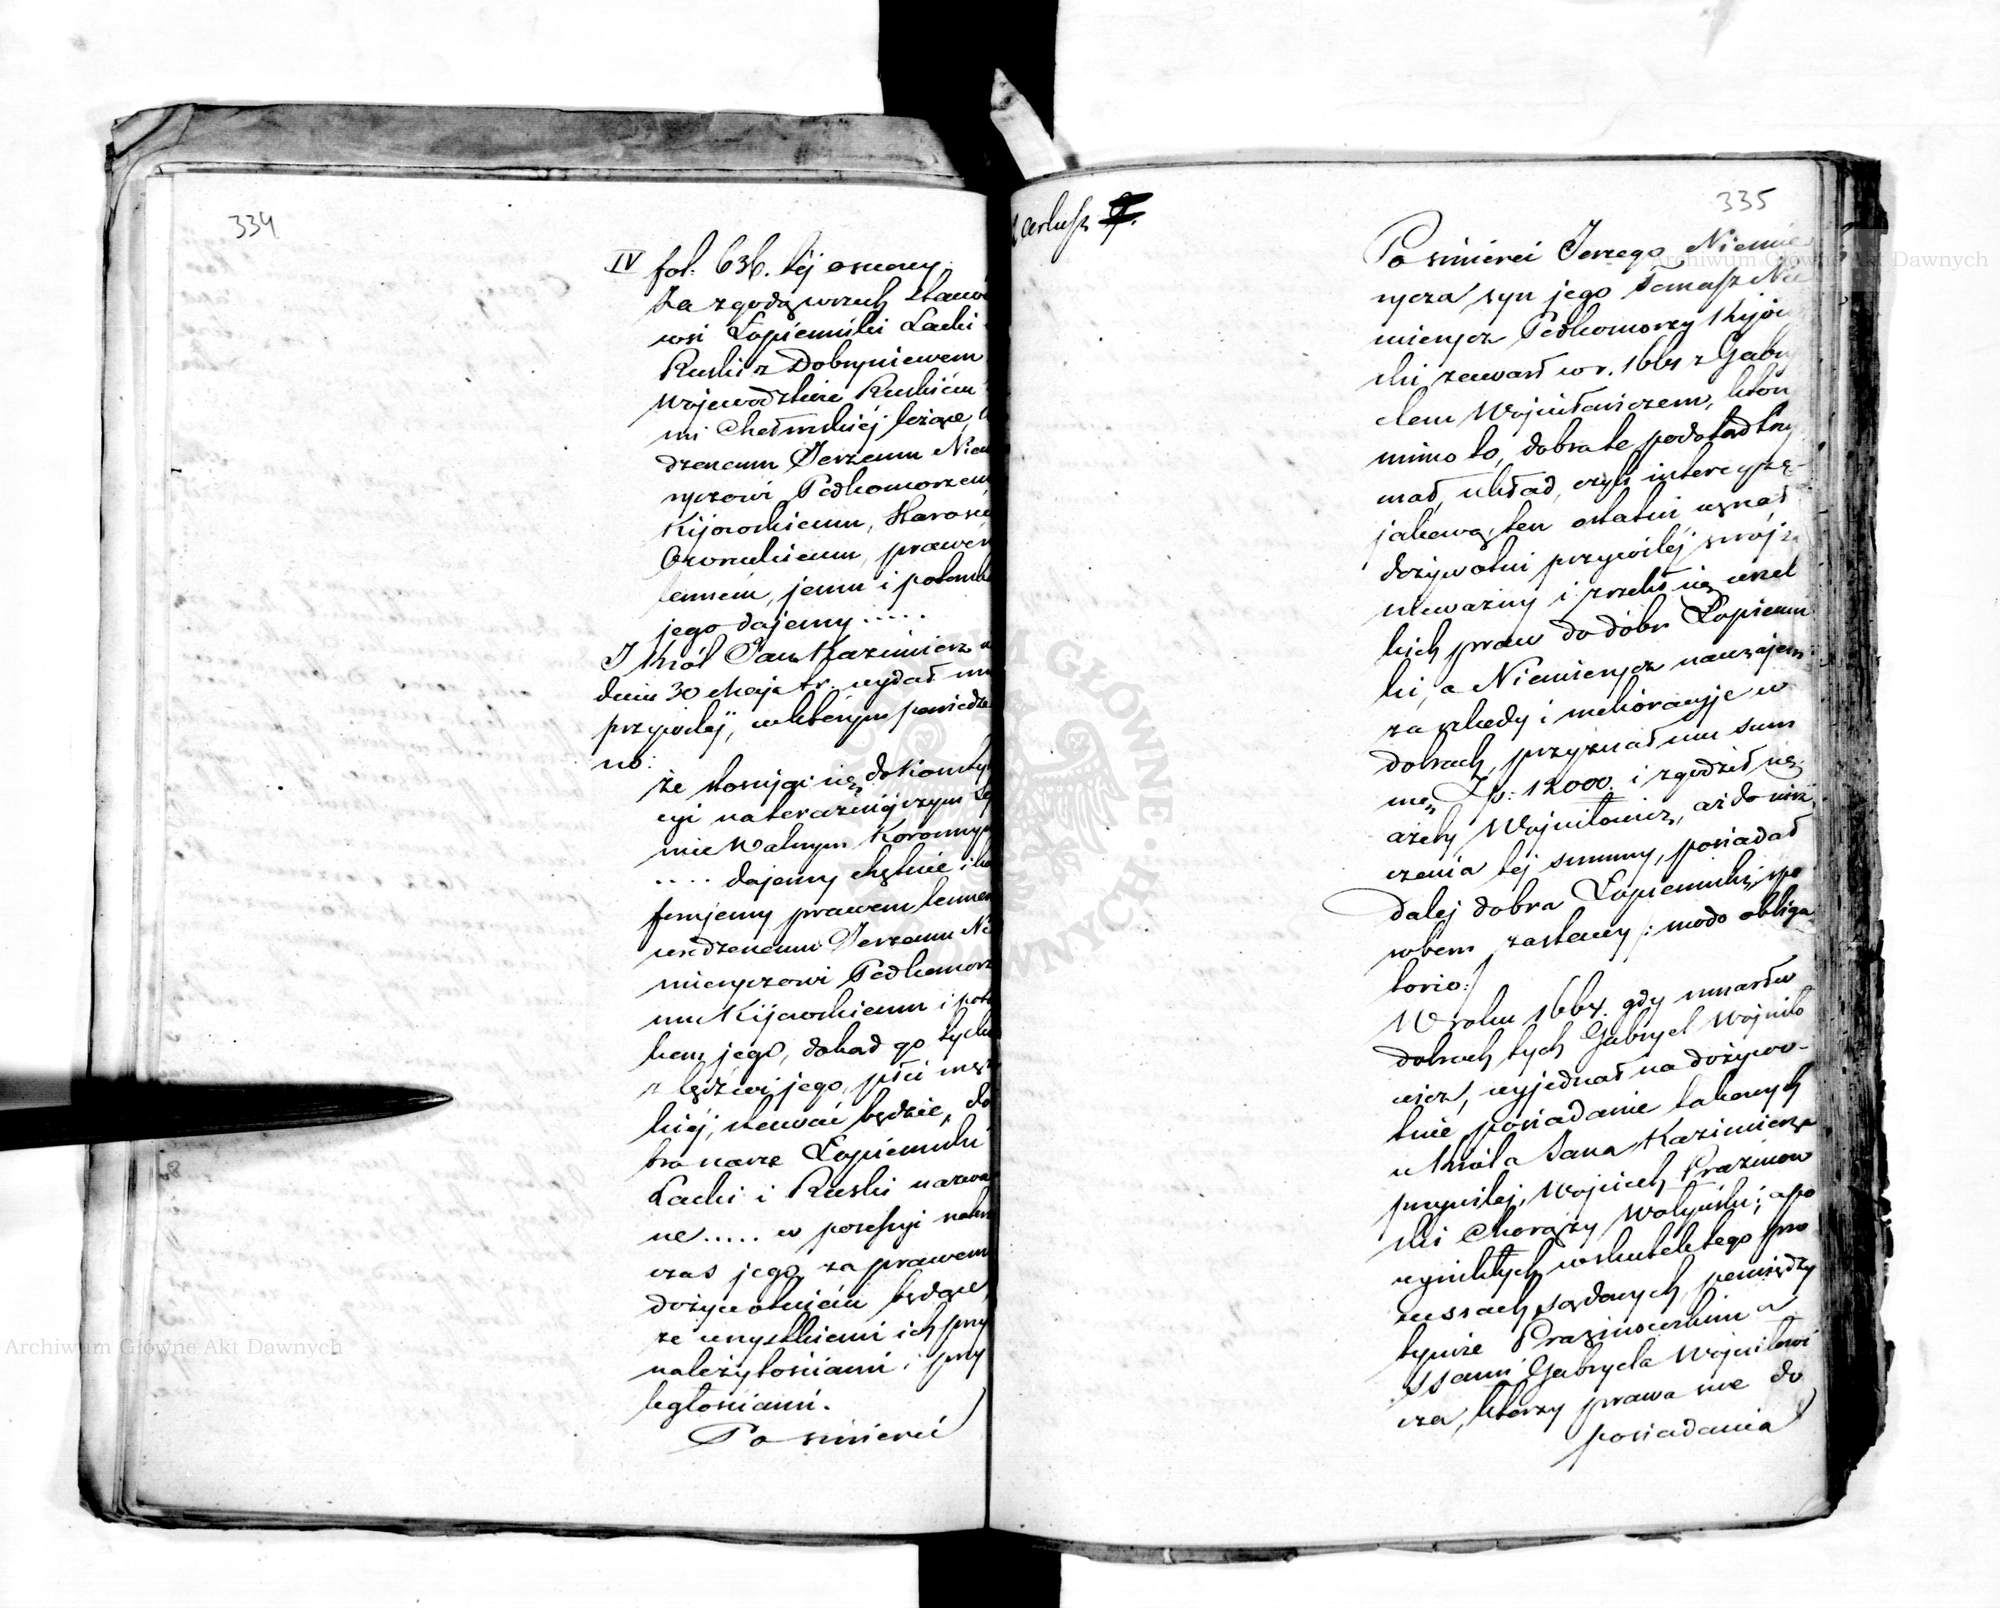 334
IV fol: 636. téj osnowy.
Za zgodą wszech Stanów
wsi Łopienniki Lacki
Ruski z Dobryniewem
Województwie Ruskiém
mi Chełmskiéj leżące,
dzenemu Jerzemu Niem
ryczowi Podkomorzem
Kijowskiemu, Staroście
Owruckiemu, prawem
lenném, jemu i potomk
jego dajemy.....
I Król Jan Kazimierz w
dniu 30 Maja t.r. wydał mu
przywiléj, w którym powiedzia
no:
że stosując się do Konstytu
cyi na teraźniéjszym Sej
mie Walnym Koronnym
.... dajemy chętnie i kon
ferujemy prawem lennem
urodzenemu Jerzemu Nie
miryczowi Podkomorze
mu Kijowskiemu i potom
kom jego, dokąd go tychże
z lędźwi jego, płci męz
kiéj, stawać będzie, do
bra nasze Łopienniki
Lacki i Ruski nazwa
ne..... w possesyi natenc
czas jego za prawem
dożywotniém będące,
ze wszystkiemi ich przy
należytościami i przy
ległościami.
Po śmierci
Arkusz
335
Po śmierci Jerzego Niemie
rycza syn jego Tomasz Nie
mierycz Podkomorzy Kijow
ski zawarł w r. 1664 z Gabry
elem Wojniłowiczem, który
mimo to, dobra te podotąd trzy
mał, układ, czyli intercyzę
jakową ten ostatni uznał
dożywotni przywiléj swój za
nieważny i zrzekł się wszel
kich praw do dóbr Łopienni
ki, a Niemierycz nawzajem
za szkody i melioracyje w
dobrach, przyznał mu sum
mę Zp: 12000. i zgodził się,
ażeby Wojniłowicz, aż do uisz
czenia téj summy, posiadał
daléj dobra Łopienniki, spo
sobem zastawy /: modo obliga
torio:/
W roku 1664. gdy umarł w
dobrach tych Gabryel Wojniło
wicz, wyjednał na dożywo-
tnie posiadanie takowych
u Króla Jana Kazimierza
przywiléj, Wojciech Prażmow
ski Chorąży Wołyński; a po
wynikłych wskutek tego pro
cessach sądowych, pomiędzy
tymże Prażmowskim a
SSami Gabryela Wojniłowi
cza, którzy prawa swe do
posiadania
Archiwum Główne Akt Dawnych
Archiwum Główne Akt Dawnych